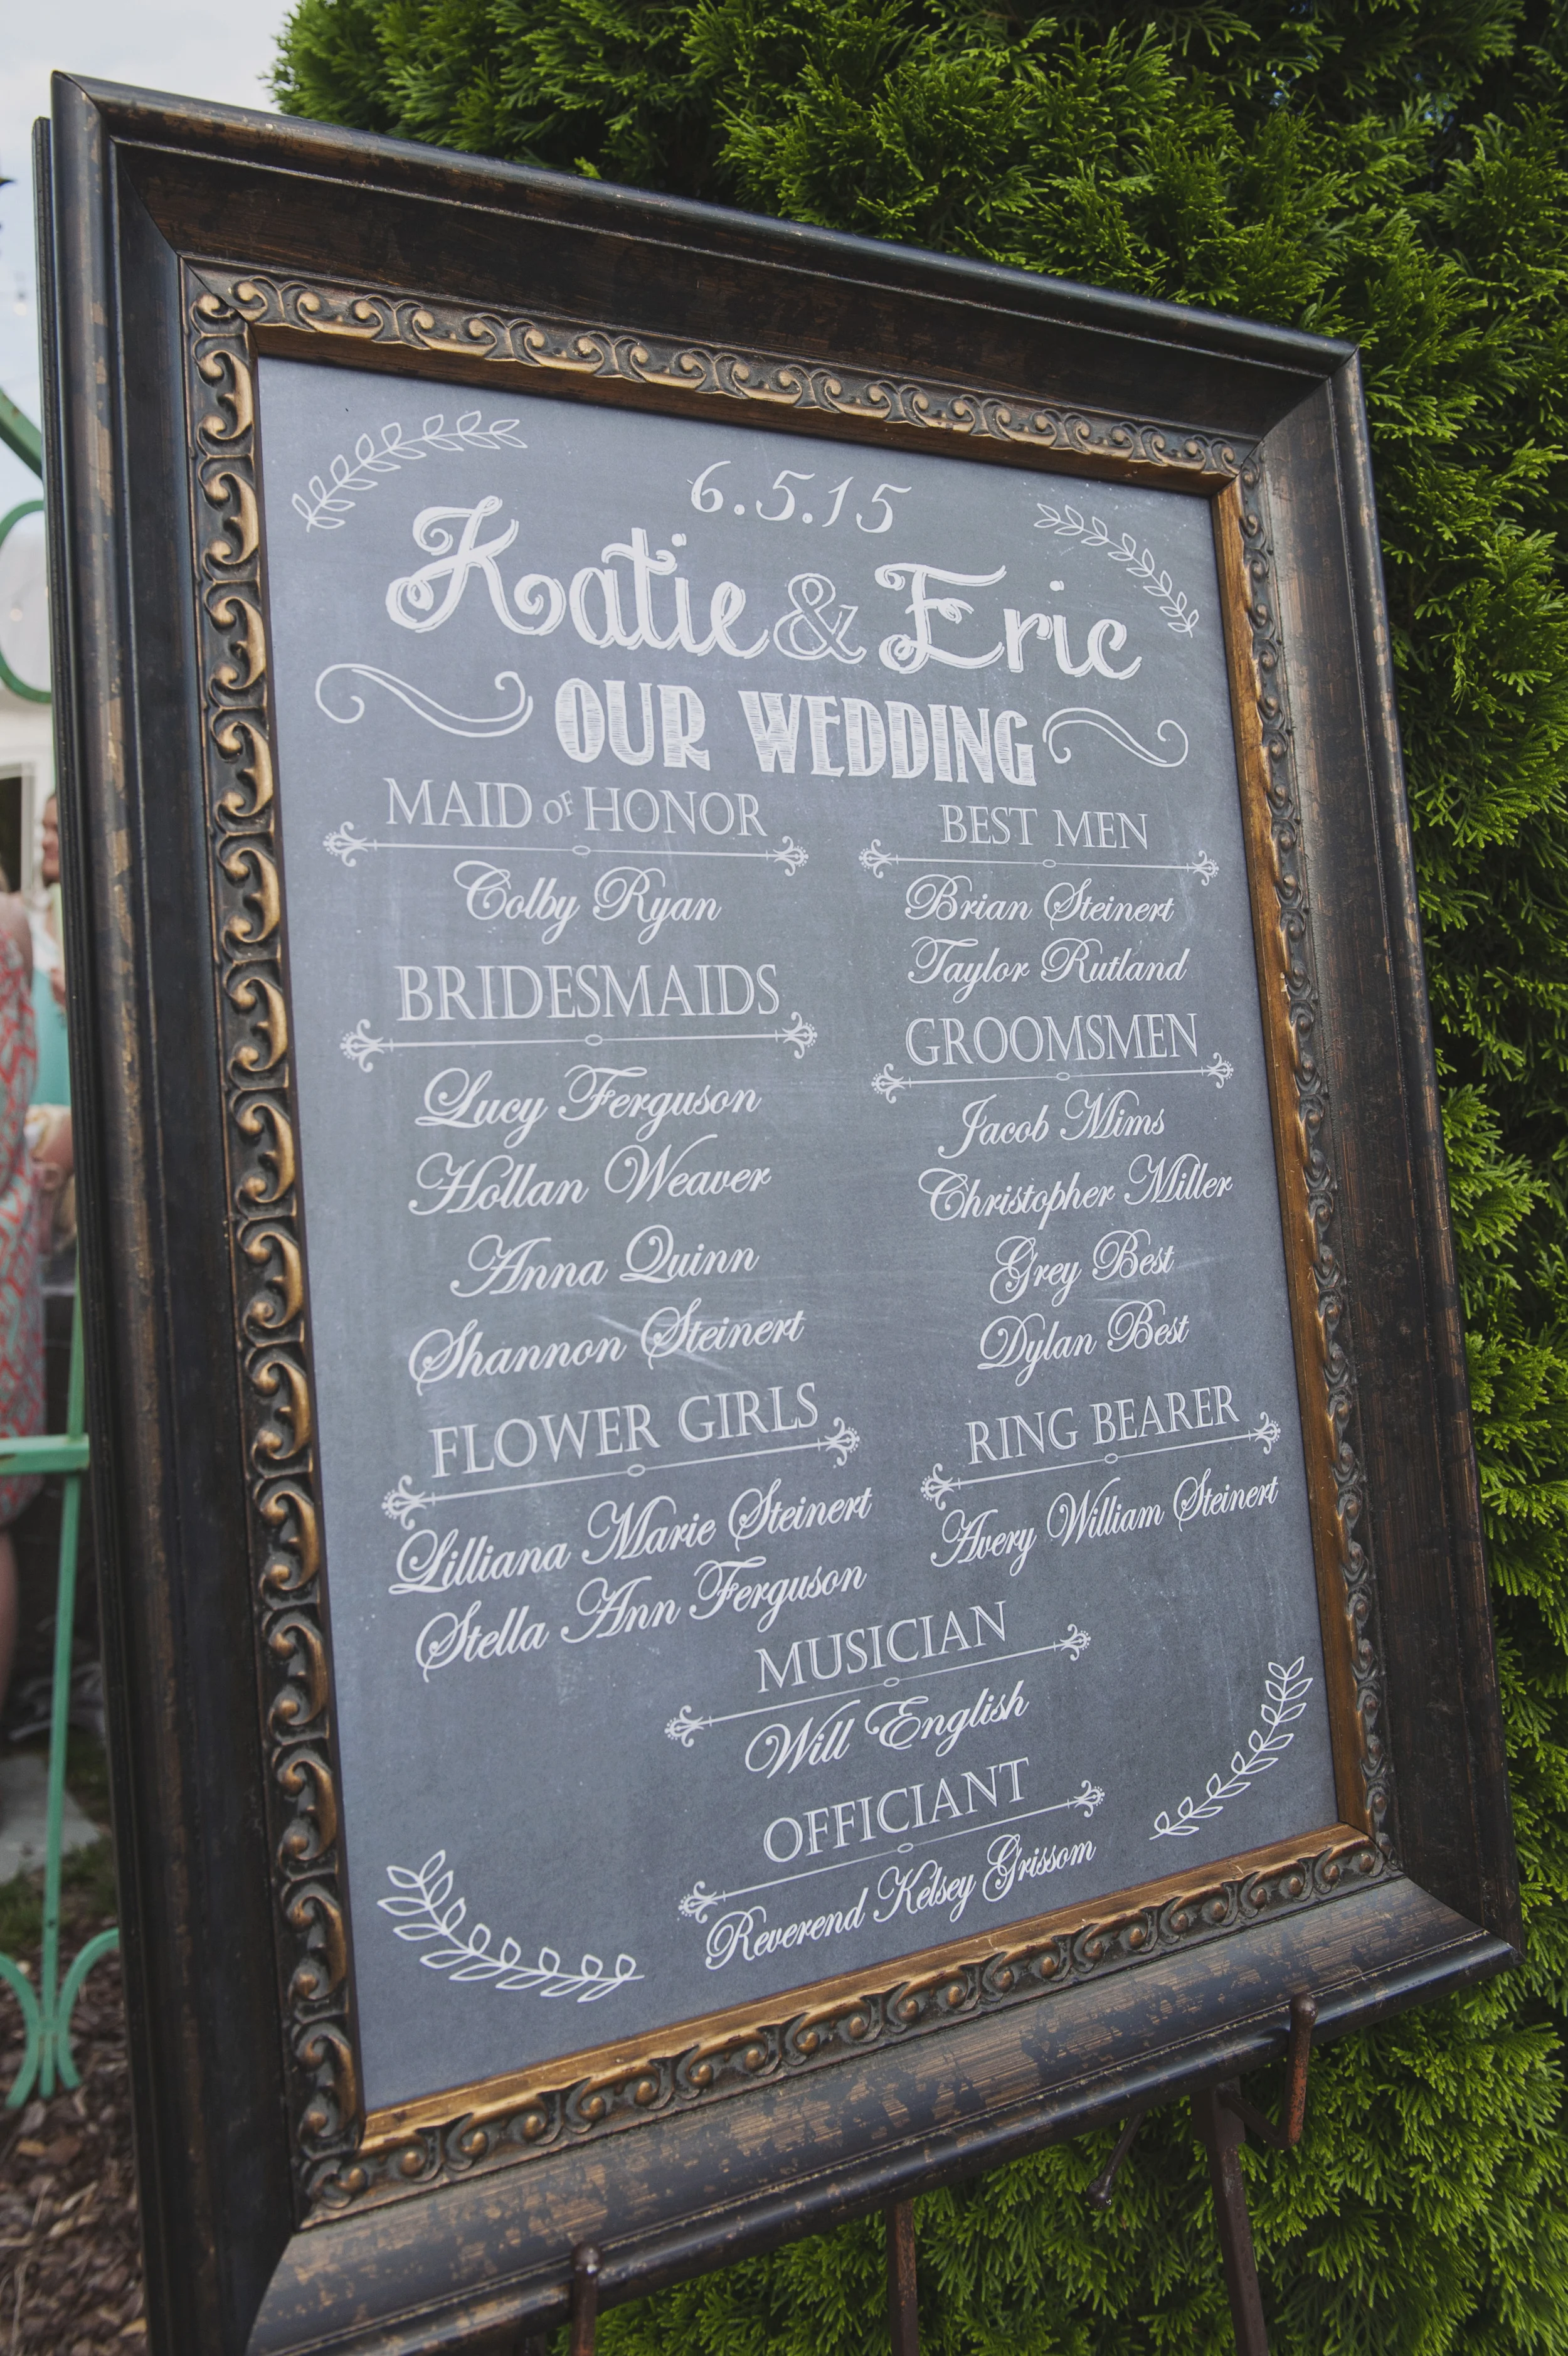 6.5.15
Katie & Eric
OUR WEDDING
MAID OF HONOR
Colby Ryan
BRIDESMAIDS
Lucy Ferguson
Hollan Weaver
Anna Quinn
Shannon Steinert
FLOWER GIRLS
Lilliana Marie Steinert
Stella Ann Ferguson
BEST MEN
Brian Steinert
Taylor Rutland
GROOMSMEN
Jacob Mims
Christopher Miller
Grey Best
Dylan Best
RING BEARER
Avery William Steinert
MUSICIAN
Will English
OFFICIANT
Reverend Kelsey Grissom